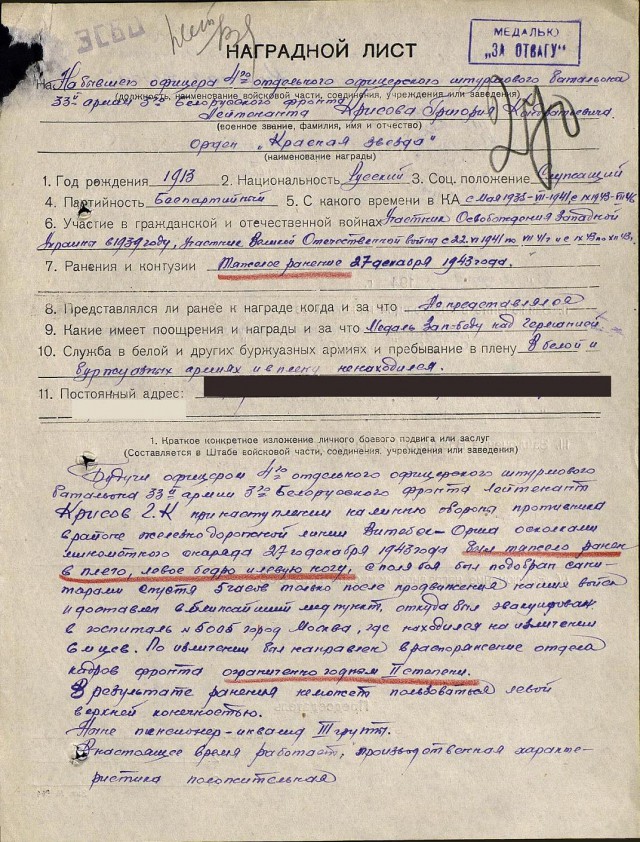 МЕДАЛЬЮ
„ЗА ОТВАГУ"
НАГРАДНОЙ ЛИСТ
На бывшего офицера 4го отдельного офицерского штурмового батальона
(должность, наименование войсковой части, соединения, учреждения или заведения)
33й армии 3го Белорусского фронта
Лейтенанта Крисова Григория Кондратьевича
(военное звание, фамилия, имя и отчество)
Орден „Красная звезда"
(наименование награды)
1. Год рождения 1913 2. Национальность Русский 3. Соц. положение Служащий
4. Партийность Беспартийный 5. С какого времени в КА с Мая 1935-VII-1941 с IX 1943-
6. Участие в гражданской и отечественной войнах Участник Освобождения Западной
Украины в 1939 году, участник Великой Отечественной войны с 22.VI 1941 по VII 41 г и с IX 43 по XII 43 г.
7. Ранения и контузии Тяжелое ранение 27 декабря 1943 года.
8. Представлялся ли ранее к награде когда и за что Не представлялся
9. Какие имеет поощрения и награды и за что Медаль За победу над Германией
10. Служба в белой и других буржуазных армиях и пребывание в плену В белой и
буржуазных армиях и в плену не находился.
11. Постоянный адрес:
1. Краткое конкретное изложение личного боевого подвига или заслуг
(Составляется в Штабе войсковой части, соединения, учреждения или заведения)
Будучи офицером 4го отдельного офицерского штурмового
батальона 33й армии 3го Белорусского фронта лейтенант
Крисов Г.К при наступлении на линию обороны противника
в районе железнодорожной линии Витебск-Орша осколками
минометного снаряда 27го декабря 1943 года был тяжело ранен
в плечо, левое бедро и левую ногу, с поля боя был подобран сани-
тарами спустя 5 часов только после продвижения наших войск
и доставлен в ближайший медпункт, откуда был эвакуирован
в госпиталь №5005 город Москва, где находился на излечении
6 м-цев. По излечении был направлен в распоряжение отдела
кадров фронта ограниченно годным II степени.
В результате ранения не может пользоваться левой
верхней конечностью.
Ныне пенсионер-инвалид III группы.
В настоящее время работает, производственная характе-
ристика положительная